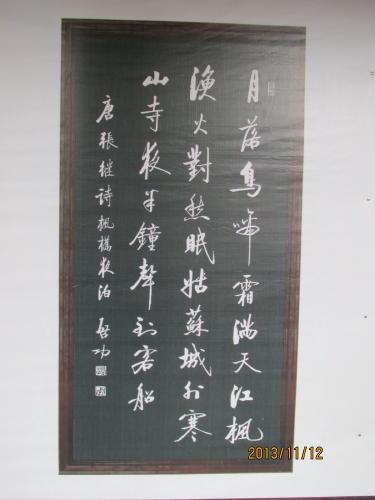 月落烏啼霜滿天江楓
漁火對愁眠姑蘇城外寒
山寺夜半鐘聲到客船
唐張继詩楓橋夜泊 启功
2013/11/12